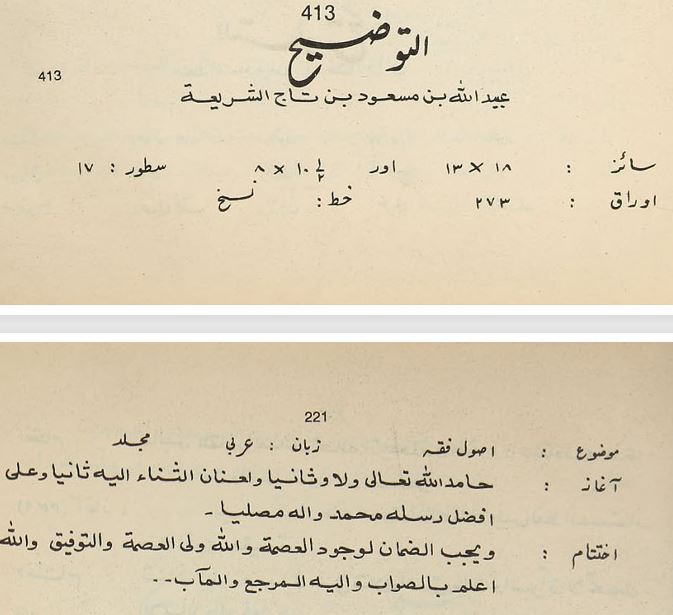 413
التوضیح
413
عبید اللہ بن مسعود بن تاج الشریعة
سائز : ۱۸ × ۱۳ اور ۱۰ ½ × ۸ سطور : ۱۷
اوراق : ۲۷۳ خط : نسخ
221
موضوع : اصول فقہ زبان : عربی مجلد
آغاز : حامد اللہ تعالی ولا وثانیا ولعنان الثناء الیہ ثانیا وعلی
افضل رسلہ محمد والہ مصلیا ۔
اختتام : ویجب الضمان لوجود العصمة واللہ ولی العصمة والتوفیق واللہ
اعلم بالصواب والیہ المرجع والمآب ۔ ۔